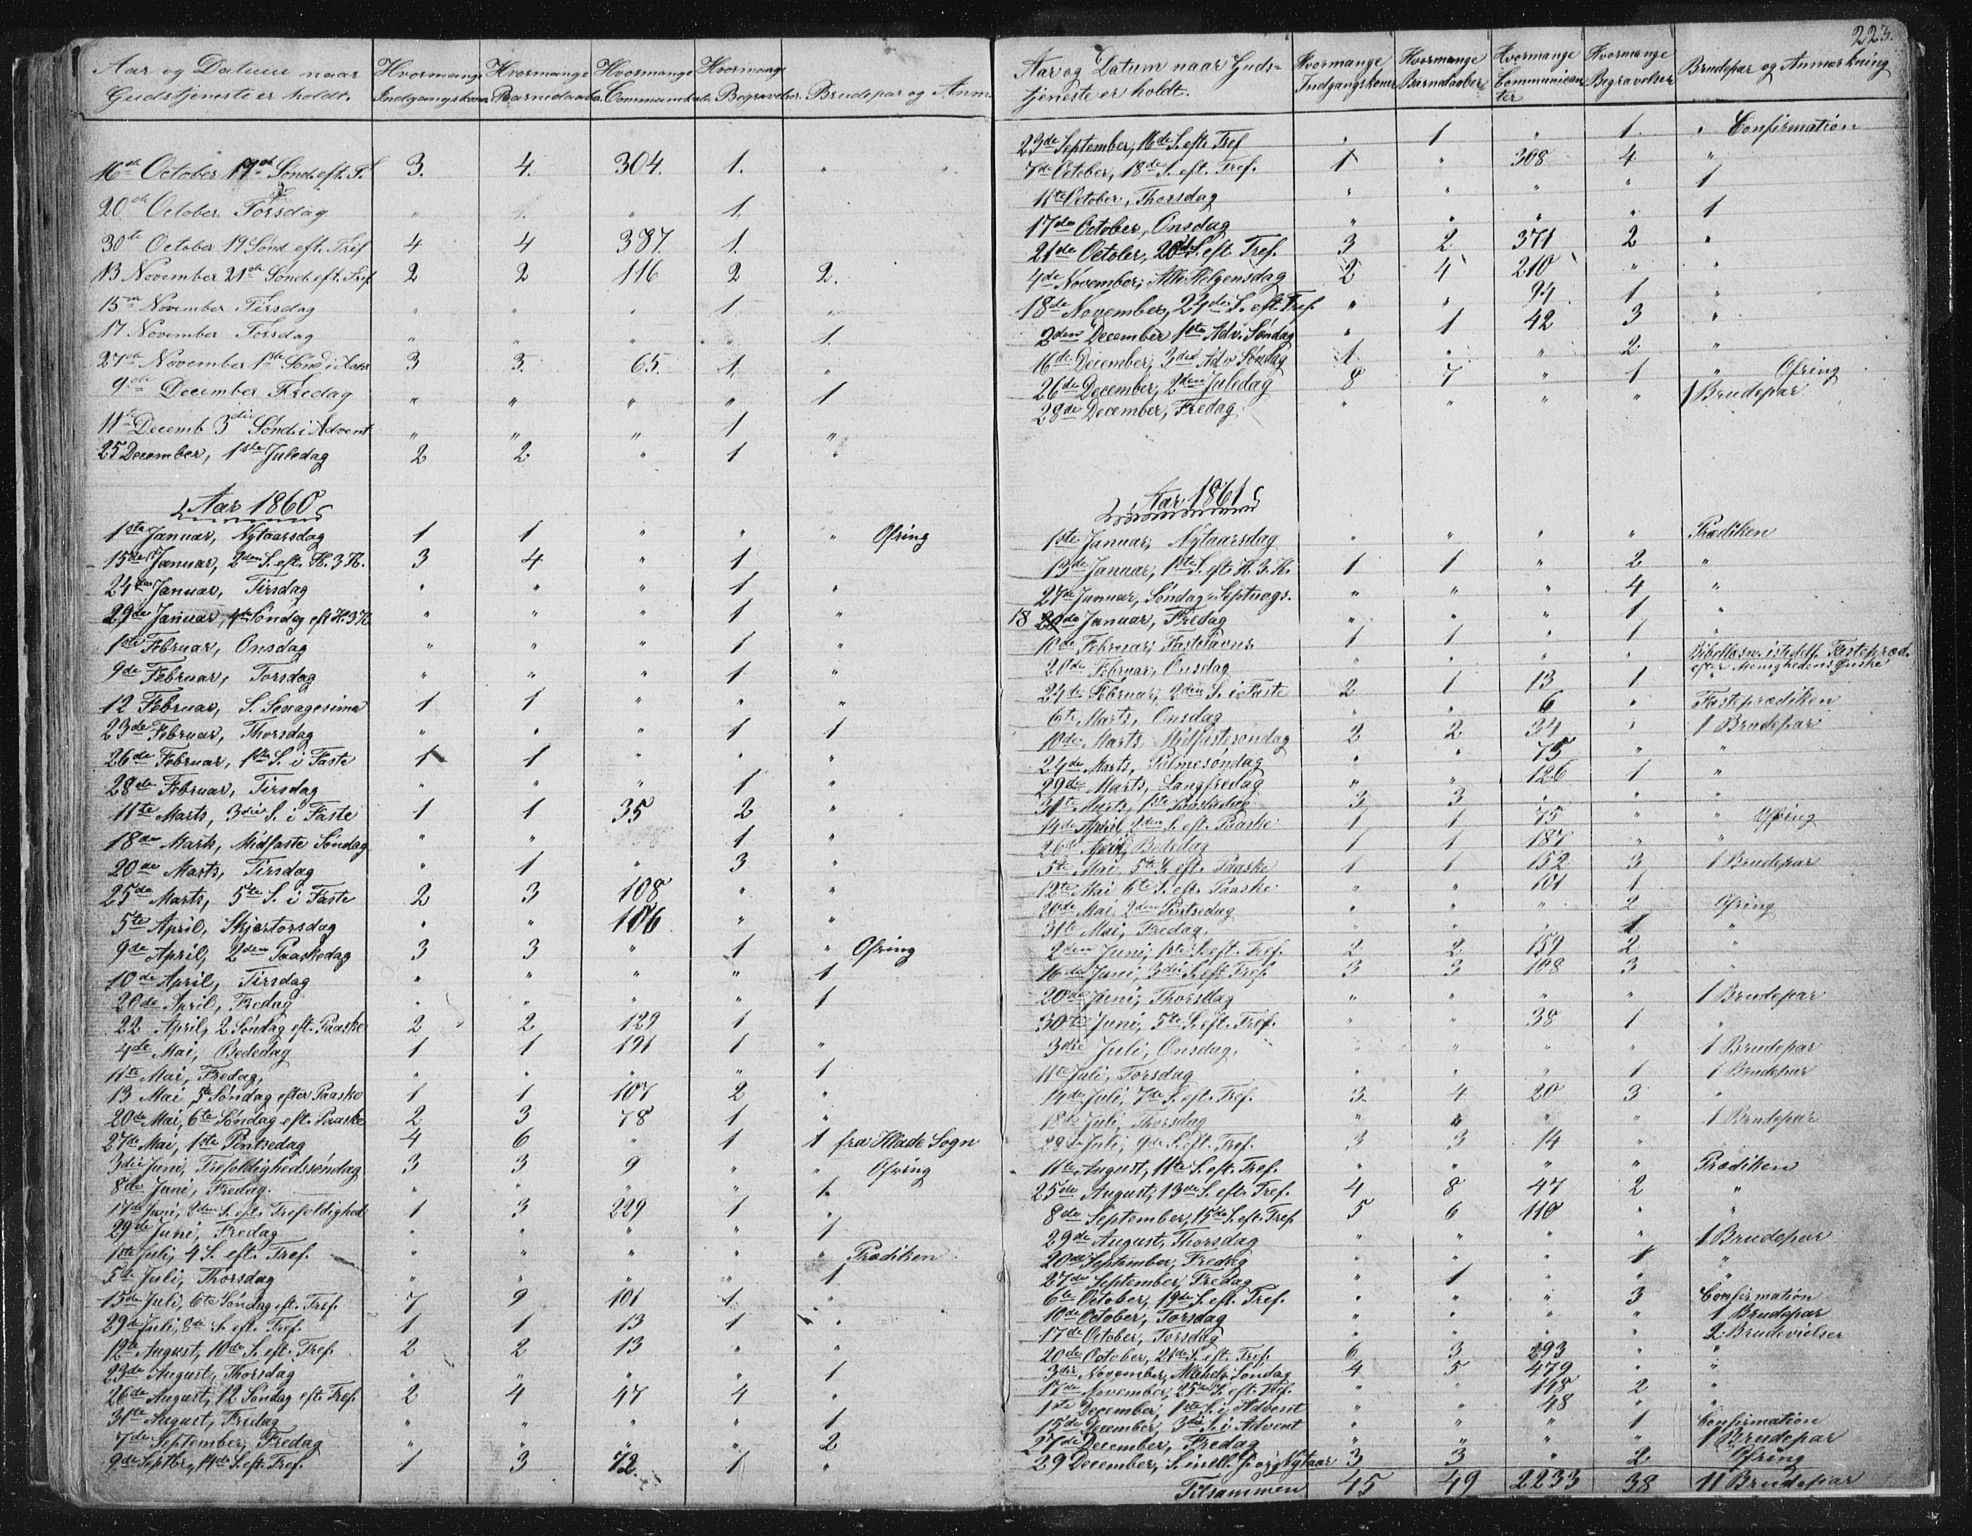 Aar og Datum naar Gudstjeneste er holdt. Hvormange Indgangskoner Hvormange Barnedaabe Hvormange Communicanter Hvormange Begravelser. Brudepar og Anm
16de October 17de Sönd. eft. T. 3. 4. 304. 1. "
20de October Torsdag " 1. " 1.
30te October 19 Sönd eft. Tref 4 4 387 1.
13 November 21de Sönd. eft. Tref 2 2 116 2 2.
15de November Tirsdag " " . 1. "
17 November Torsdag " " " " 1.
27de November 1ste Sönd i Adv 3 3. 65. 1. "
9de December Fredag " " " " 1
11te Decemb 3die Sönd i Advent " " " 1 "
25 December, 1ste Juledag 2 2 " 1 "
Aar 1860
1ste Januar, Nytaarsdag 1 1 " " " Ofring
15de Januar, 2den S. eft. H. 3 K. 3 4 " 1 "
24de Januar, Tirsdag " " " 1 "
29de Januar, 4de Søndag eft H3K " " " 1 "
1ste Februar, Onsdag " " " 1 "
9de Februar, Torsdag " " " 1 "
12 Februar, S. Sexagesima 1 1 " " "
23de Februar, Thorsdag " " " 1 1
26de Februar, 1ste S. i Faste 1 1 " " "
28de Februar, Tirsdag " " " 1 "
11te Marts, 3die S. i Faste 1 1 35 2 "
18de Marts, Midfaste Søndag " " 1 "
20de Marts, Tirsdag " 1 " 3 "
25de Marts, 5te S. i Faste 2 3 108 " "
5te April, Skjertorsdag " " 106 " "
9de April, 2den Paaskedag 3 3 " 1 " Ofring
10de April, Tirsdag " " " " 1
20de April, Fredag " " " " 1
22 April, 2 Søndag eft. Paaske 2 2 129 1 "
4de Mai, Bededag 1 1 191 1 "
11te Mai, Fredag, " " " " 1
13 Mai 5te Søndag efter Paaske 1 1 107 2 "
20de Mai, 6te Søndag eft. Paaske 2 3 78 1 "
27de Mai, 1ste Pintsedag 4 6 " 1 1 fra Hlade Sogn
3die Juni, Trefoldighedssøndag 3 3 9 " " Ofring
8de Juni, Fredag. " " " " 1.
17de Juni, 2den S. eft. Trefoldighed 1 3 229 1 "
29de Juni, Fredag " " " " 1
1ste Juli, 4 S. eft. Tref. " " " " " Prædiken
5te Juli, Thorsdag " " " " 1
15de Juli, 6te Søndag eft. Tref. 7 9 101 1 "
29de Juli, 8de S. eft. Tref. 1 1 13 1 "
12te August, 10de S. eft. Tref. 2 2 13 " "
23de August, Thorsdag " " " " 1
26de August, 12 Søndag eft. Tref. 2 4 47 4 "
31te August, Fredag " " " " 1
7de September, Fredag " " " " 2
9de Septbr, 14de S. eft. Tref. 1 3 72. 1 "
223.
Aar og Datum naar Gudstjeneste er holdt. Hvormange Indgangskoner Hvormange Barnedaaber Hvormange Communicanter Hvormange Begravelser Brudepar og Anmærkning
23de September, 16de S. eft. Tref " 1 " 1. " Confirmation
7de October, 18de S. eft. Tref. 1 " 308 4 "
11te October, Thorsdag " " " " 1
17de October, Onsdag " " " " 1
21de October, 20de S. eft. Tref. 3 2 371 2 "
4de November, Alle Helgensdag 2 4 210 " "
18de November, 24de S. eft. Tref. " " 94 1 "
2den December 1ste Adv. Søndag " 1 42 3 "
16de December, 3die Adv Søndag 1 " " 2 "
26de December, 2den Juledag 8 7 " 1 " Ofring
28de December, Fredag " " " " 1 Brudepar
Aar 1861
1ste Januar, Nytaarsdag " " " " Prædiken
13de Januar, 1ste S. eft. H. 3. K. 1 1 " 2 "
27de Januar, Søndag Septuags. " " " 4 "
18 Januar, Fredag " " " 1 "
10de Februar, Fastelavns 1 1 " 1 "
21de Februar, Onsdag " " " " Bibellæsn. istedetf. Fastepræd. efter Menighedens Ønske
24de Februar, 2den S. i Faste 2 1 13 1 "
6te Marts, Onsdag " " 6 " Fasteprædiken
10de Marts, Midfastesøndag 2 2 34 " 1 Brudepar
24de Marts, Palmesøndag " " 75 " "
29de Marts, Langfredag " " 126 1 "
31te Marts, 1ste Paaskedag 3 3 " " "
14de April 2den S. eft. Paaske 1 1 75 " " Ofring
26te April Bededag 1 1 187 " "
5te Mai 5te S. eft. Paaske 1 1 152 3 1 Brudepar
12te Mai 6te S. eft. Paaske " " 101 1 "
20de Mai 2den Pintsedag " " " 2 Ofring
31te Mai, Fredag. " " " 1 "
2den Juni, 1ste S. eft. Tref. 2 2 159 2 "
16de Juni, 3die S. eft. Tref. 3 3 108 3 "
20de Juni, Thorsdag " " " " 1 Brudepar
30te Juni, 5te S. eft. Tref. " " 38 1 "
3die Juli, Onsdag, " " " " 1 Brudepar
11te Juli, Torsdag " " " 1 1 Brudepar
14de Juli, 7de S. eft. Tref. 3 4 20 3 "
18de Juli, Thorsdag " " " " 1 Brudepar
28de Juli, 9de S. eft. Tref. 3 3 14 " "
11te August, 11te S. eft. Tref. " " " " Prædiken
25de August, 13de S. eft. Tref. 4 8 47 2 "
8de September, 15de S. eft. Tref 5 6 110 " "
29de August, Thorsdag " " " " 1 Brudepar
20de September, Fredag " " " 1 "
27de September, Fredag " 1 " " "
6te October, 19de S. eft. Tref. " " " 3 Confirmation
10de October, Torsdag " " " " 1 Brudepar
17de October, Torsdag " " " " 2 Brudevielser
20de October, 21de S. eft. Tref. 6 3 293 " "
3die November, Alleheln. Søndag 4 5 479 " "
17de November, 25de S. eft. Tref. " " 148 2 "
1ste December, 1ste S. i Advent " " 48 " "
15de December, 3die S. i Advent " " " 1 Confirmation
27de December, Fredag " " " " 1 Brudepar
29 December, S. mell. Juul og Nytaar 3 3 " 2 Ofring
Tilsammen 45 49 2233 38 11 Brudepar